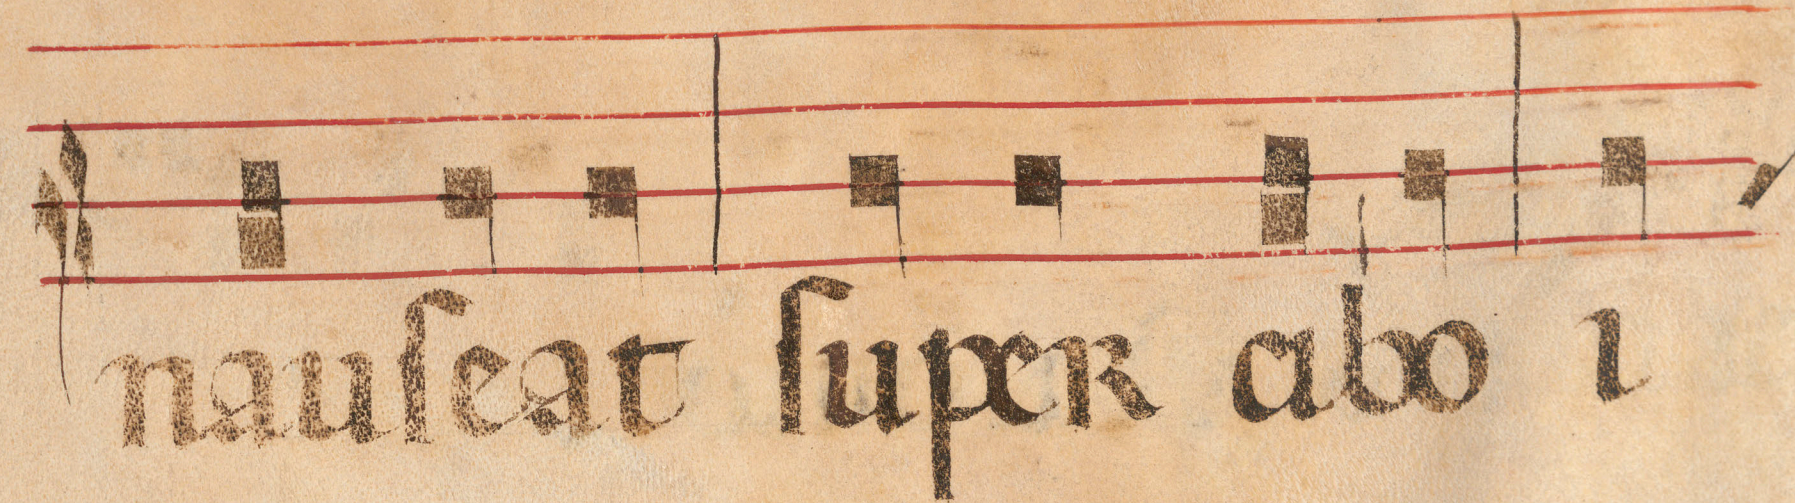 nauſeat ſuper abo i